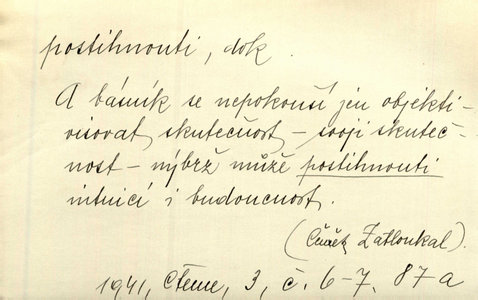 postihnouti, dok.
A básník se nepokouší jen objekti-
visovat skutečnost – svoji skuteč-
nost – nýbrž může postihnouti
intuicí i budoucnost.
(Zatloukal).
1941, Čteme, 3, č. 6-7, 87a